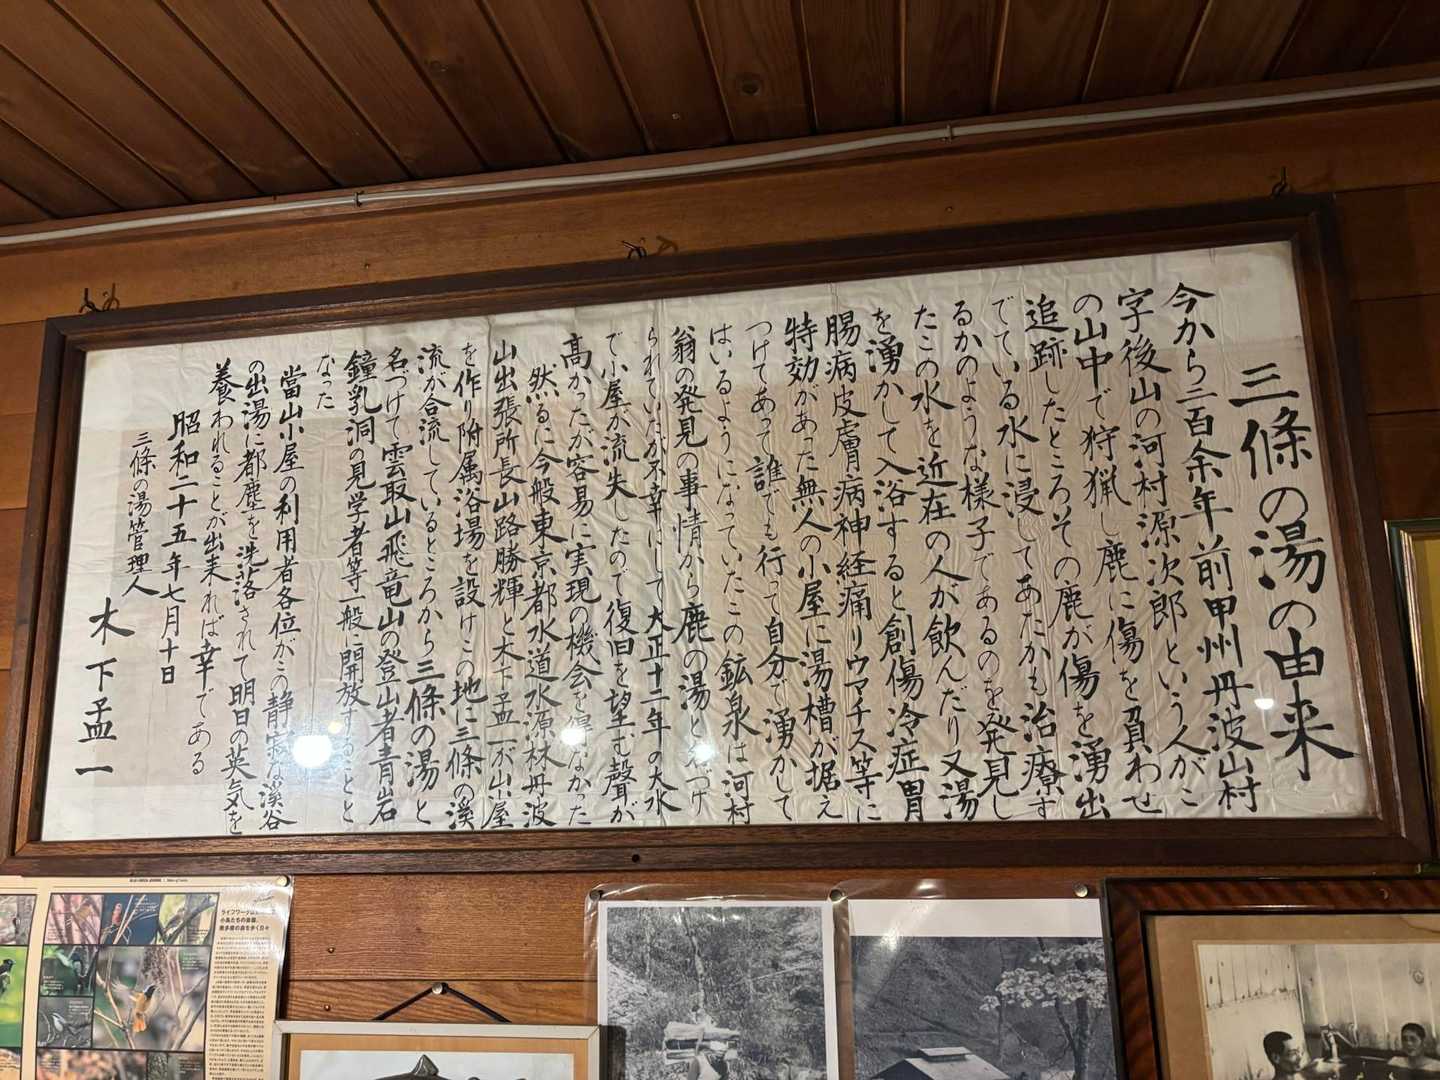 三條の湯の由来
今から二百余年前甲州丹波山村
字後山の河村源次郎という人がこ
の山中で狩猟し鹿に傷を負わせ
追跡したところその鹿が傷を湧出
でている水に浸してあたかも治療す
るかのような様子であるのを発見し
たこの水を近在の人が飲んだり又湯
を湧かして入浴すると創傷冷症胃
腸病皮膚病神経痛リウマチス等に
特効があった無人の小屋に湯槽が据え
つけてあって誰でも行って自分で湧かして
はいるようになっていたこの鉱泉は河村
翁の発見の事情から鹿の湯と名づけ
られていたが不幸にして大正十二年の大水
で小屋が流失したので復旧を望む聲が
高かったが容易に実現の機会を得なかった
然るに今般東京都水道水源林丹波
山出張所長山路勝輝と木下孟一が出屋
を作り附属浴場を設けこの地に三條の溪
流が合流しているところから三條の湯と
名づけて雲取山飛竜山の登山者青岩
鐘乳洞の見学者等一般に開放することと
なった
當山小屋の利用者各位がこの静寂な溪谷
の出湯に都塵を洗落されて明日の英気を
養われることが出来れば幸である
昭和二十五年七月十日
三條の湯管理人
木下孟一
ライフワークは
小鳥たちの楽園、
奥多摩の森を歩く日々